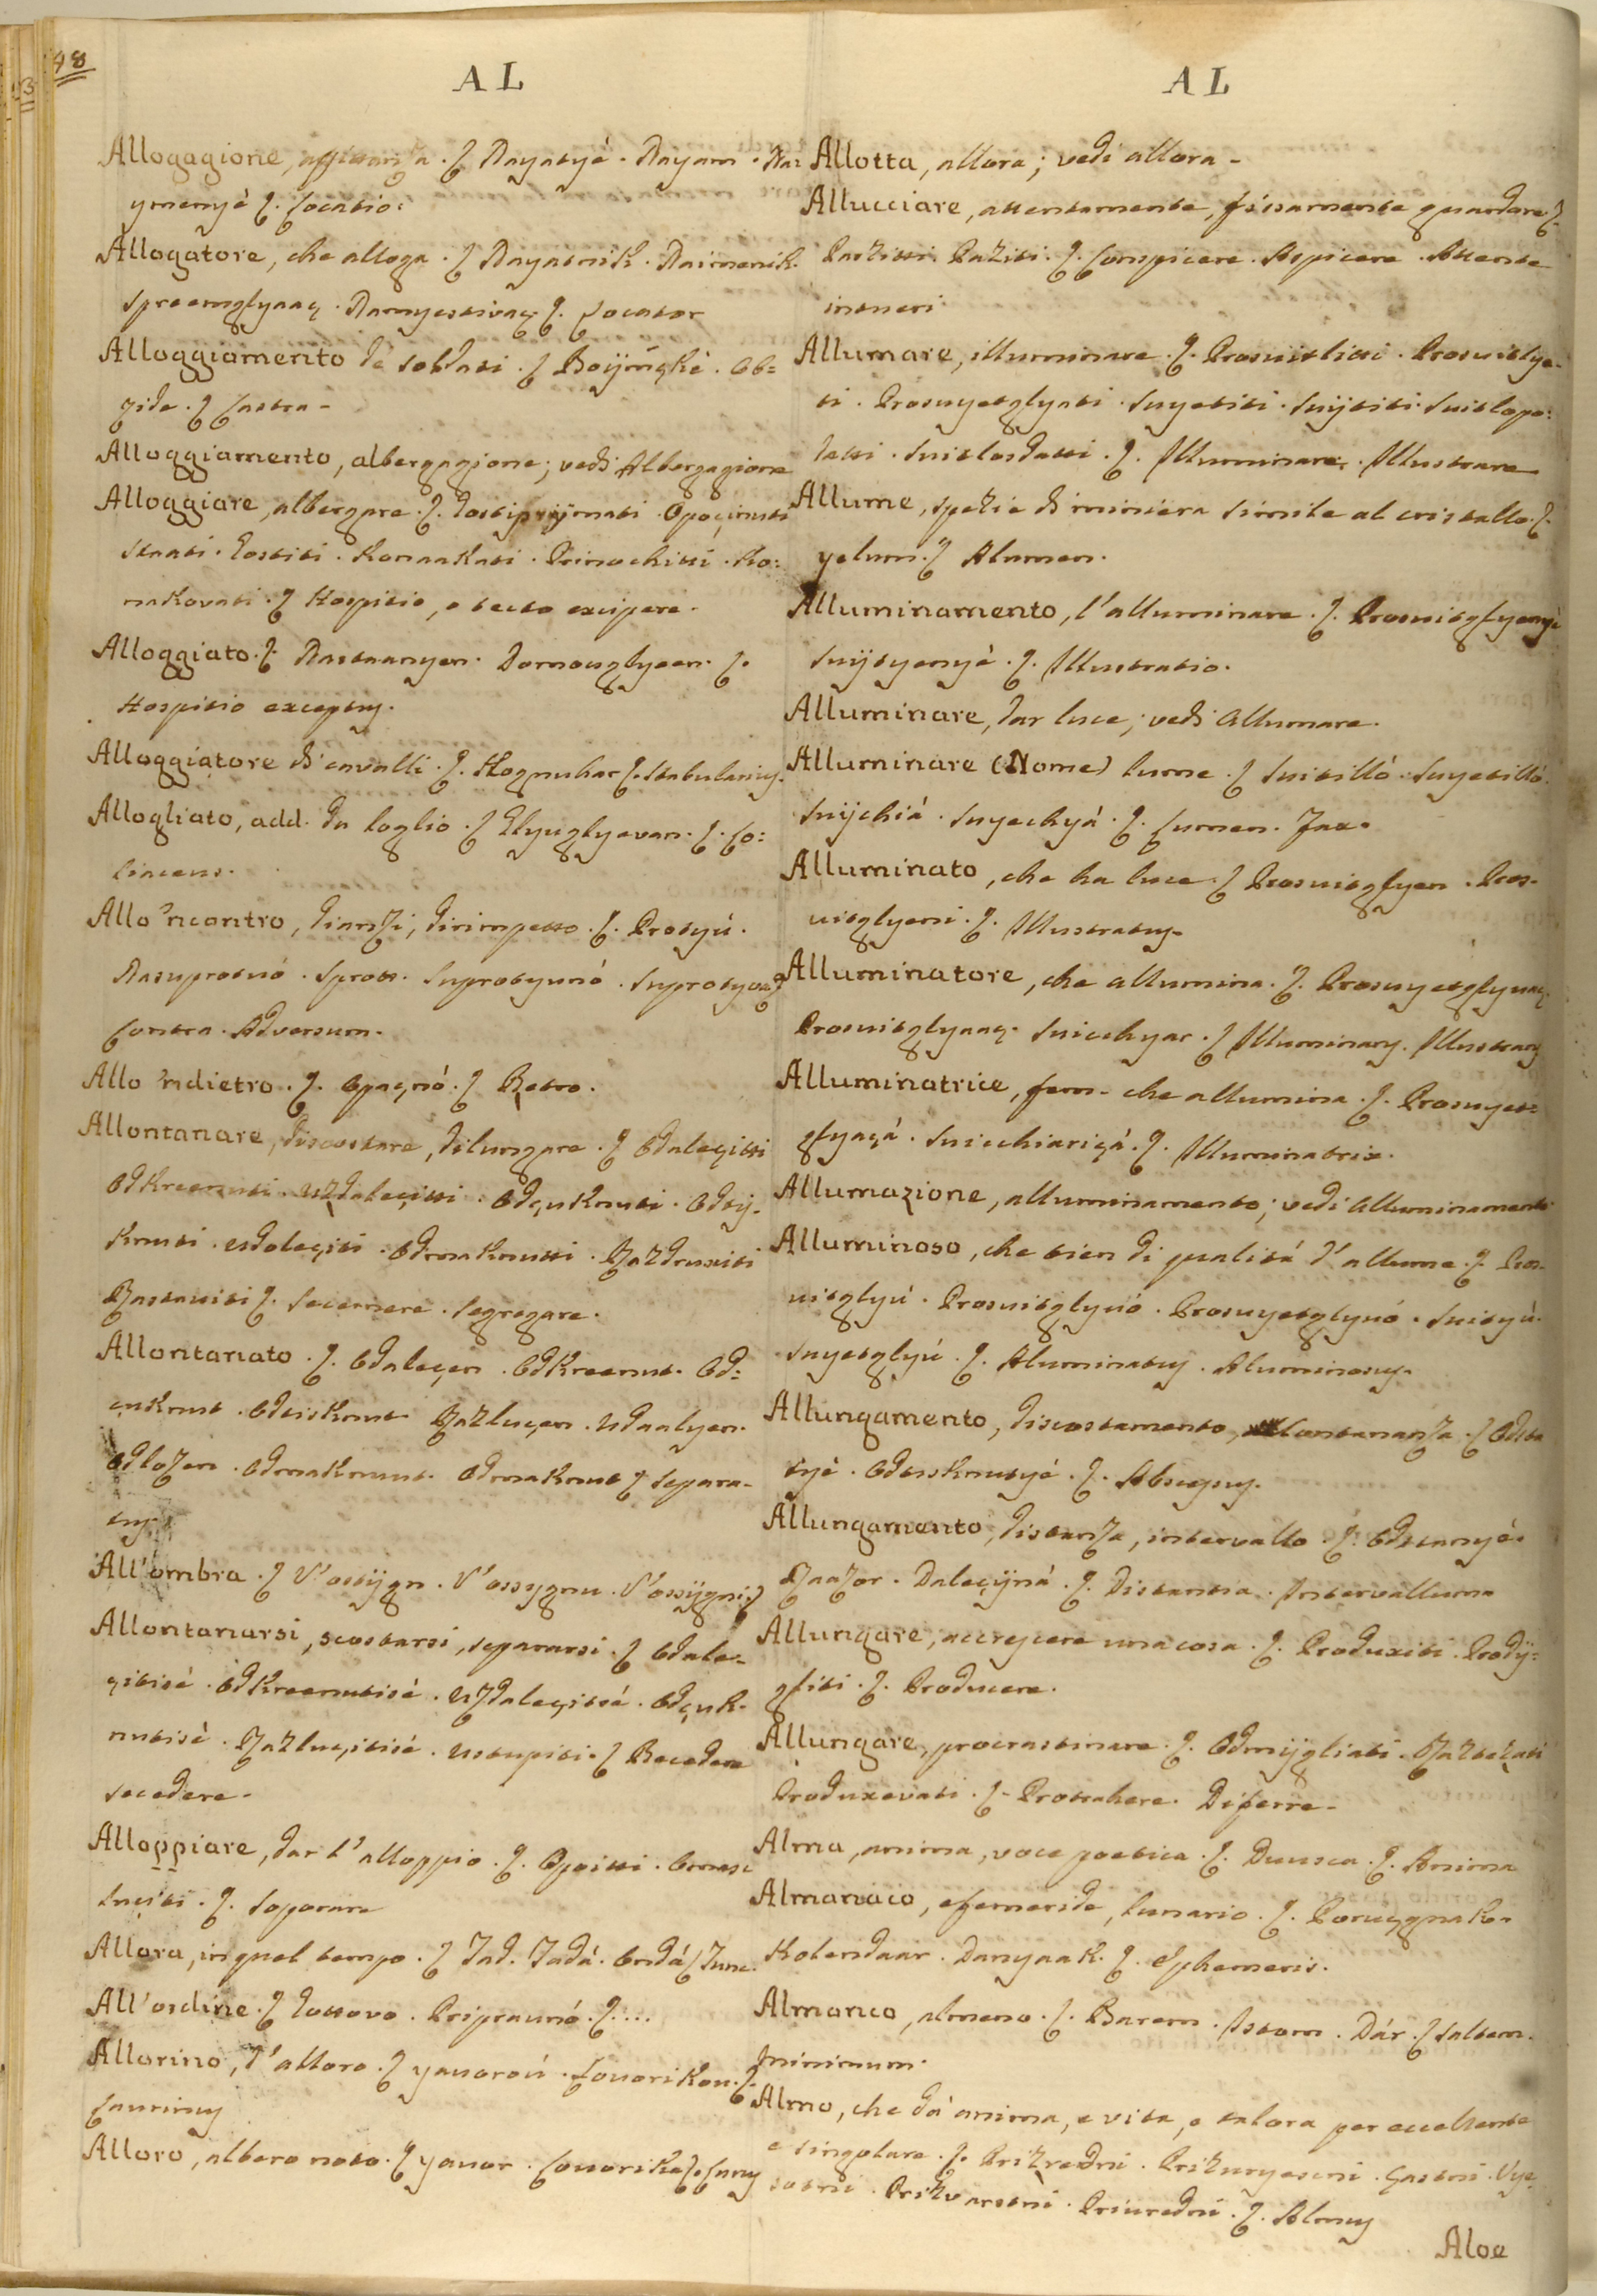 48
AL
Allogagione, . ʃ Nayatyè . Nayam . Na:
ymenyè ʃ. Locatio:
Allogatore, che alloga . ʃ Nayatnik . Naimenik.
Spreemglyaaç . Namyestivaç ʃ. Locator
Alloggiamento de soldati . ʃ Boijnçkè . Ob=
ʃ Castra -
Alloggiamento, albergagione; vedi Albergagione
Alloggiare, albergare . ʃ. Gostiprijmati . Opoçinuti
Staati . Gostiti . Konaakati . Prinochitti . Ko:
nakovati . ʃ Hospitio, o tecto excipere.
Alloggiato . ʃ. Nastaanyen . ʃ.
Hospitio exceptus.
Alloggiatore di cavalli . ʃ. ʃ. Stabularius.
Allogliato, add. da loglio . ʃ Glyuglyevan . ʃ. Lo:
liaceus.
Allo 'ncontro, dianzi, dirimpetto . ʃ. Protyú .
Nasuprotivó . Sprotti . Suprotyvnó .
Contra . Adversum.
Allo 'ndietro . ʃ. Opaçnó . ʃ Retro.
Allontanare, discostare, dilungare . ʃ Odaleçitti
Odkreenuti . Uzdaleçitti . Odçuknuti . Odtij-
knuti . Udaleçiti . Odmaknutti . Razdruxiti
Rastaviti ʃ. Secernere . Segregare.
Allontanato . ʃ. Odaleçen . Odkreenut . Od=
çuknut . Odtisknut . Razluçen . Udaalyen.
Odlozen . Odmaknuut . Odmaknut ʃ Separa-
tus.
All'ombra . ʃ
Allontanarsi, scostarsi, separarsi . ʃ Odale-
çitisè . Odkreenutisè . Uzdaleçitsè . Odçuk-
nutisè . Razluçitisè . Ustupiti . ʃ Recedere
secedere.
Alloppiare, dar l'alloppio . ʃ. Opoitti .
ʃ. Soporare
Allora, in quel tempo . ʃ Tad. Tadá . Ondá ʃ Tunc.
All'ordine . ʃ Gottovo . Pripraunó . ʃ. ...
Allorino, d'alloro . ʃ . Lovorikou . ʃ.
Laurinus
Alloro, albero noto . ʃ Yavor . Lovorika ʃ. Laurus
AL
Allotta, allora; vedi allora -
Allucciare, attentamente, fissamente guardare . ʃ.
Pazitti . Paziti . ʃ. Conspicere . Aspicere . Attente
intueri
Allumare, illuminare . ʃ. Prosviitlitti . Prosvitlya-
ti . Prosvyetglyati . Svyetiti . Svijtiti . Svitlopo:
datti . Svitlosdatti . ʃ. Illuminare . Illustrare
Allume, spezie di miniera simile al cristallo . ʃ.
yelum . ʃ Alumen.
Alluminamento, l'alluminare . ʃ. Prosvitglyenyè
Svijtyenyè . ʃ. Illustratio.
Alluminare, dar luce; vedi Allumare.
Alluminare (Nome) lume . ʃ Svitilló . Svyetilló.
Svijchiá . Svyechyá . ʃ. Lumen . Fax.
Alluminato, che ha luce . ʃ Prosvitglyen . Pros-
vitglyeni . ʃ. Illustratus.
Alluminatore, che allumina . ʃ. Prosvyetglyuaç.
Prosvitglyaaç . Svicchyar . ʃ Illuminans . Illustrans
Alluminatrice, fem. che allumina . ʃ. Prosvyet=
glyaçá . Svicchiariçá . ʃ. Illuminatrix.
Allumazione, alluminamento; vedi Alluminamento
Alluminoso, che tien di qualitá d'allume . ʃ. Pros-
vitglyú . Prosvitglyvó . Prosvyetglyvó . Svityú.
Svyetglyú . ʃ. Aluminatus . Aluminosus.
Allungamento, discostamento, llontananza . ʃ Odsta
tyè . Odtisknutyè . ʃ. Abscessus.
Allungamento, distanza, intervallo . ʃ. Odstanyè.
Raazor . Daleçijná . ʃ. Distantia . Intervallum
Allungare, accrescere una cosa . ʃ. Produxiti . Prodij=
gliti . ʃ. Producere.
Allungare, procrastinare . ʃ. Odmijgliati . Raztezati
Produxevati . ʃ. Protrahere . Diferre.
Alma, anima, voce poetica . ʃ. Duusca . ʃ. Anima
Almanaco, efemeride, lunario . ʃ.
Kolendaar . Danyaak . ʃ. Ephemeris.
Almanco, almeno . ʃ. Barem . Istom . Dár . ʃ Saltem.
minimum.
Almo, che dá anima, e vita, e talora per eccellente
e singolare . ʃ. Prikredni . . Castni . Vys-
. Privredni . ʃ. Almus
Aloe